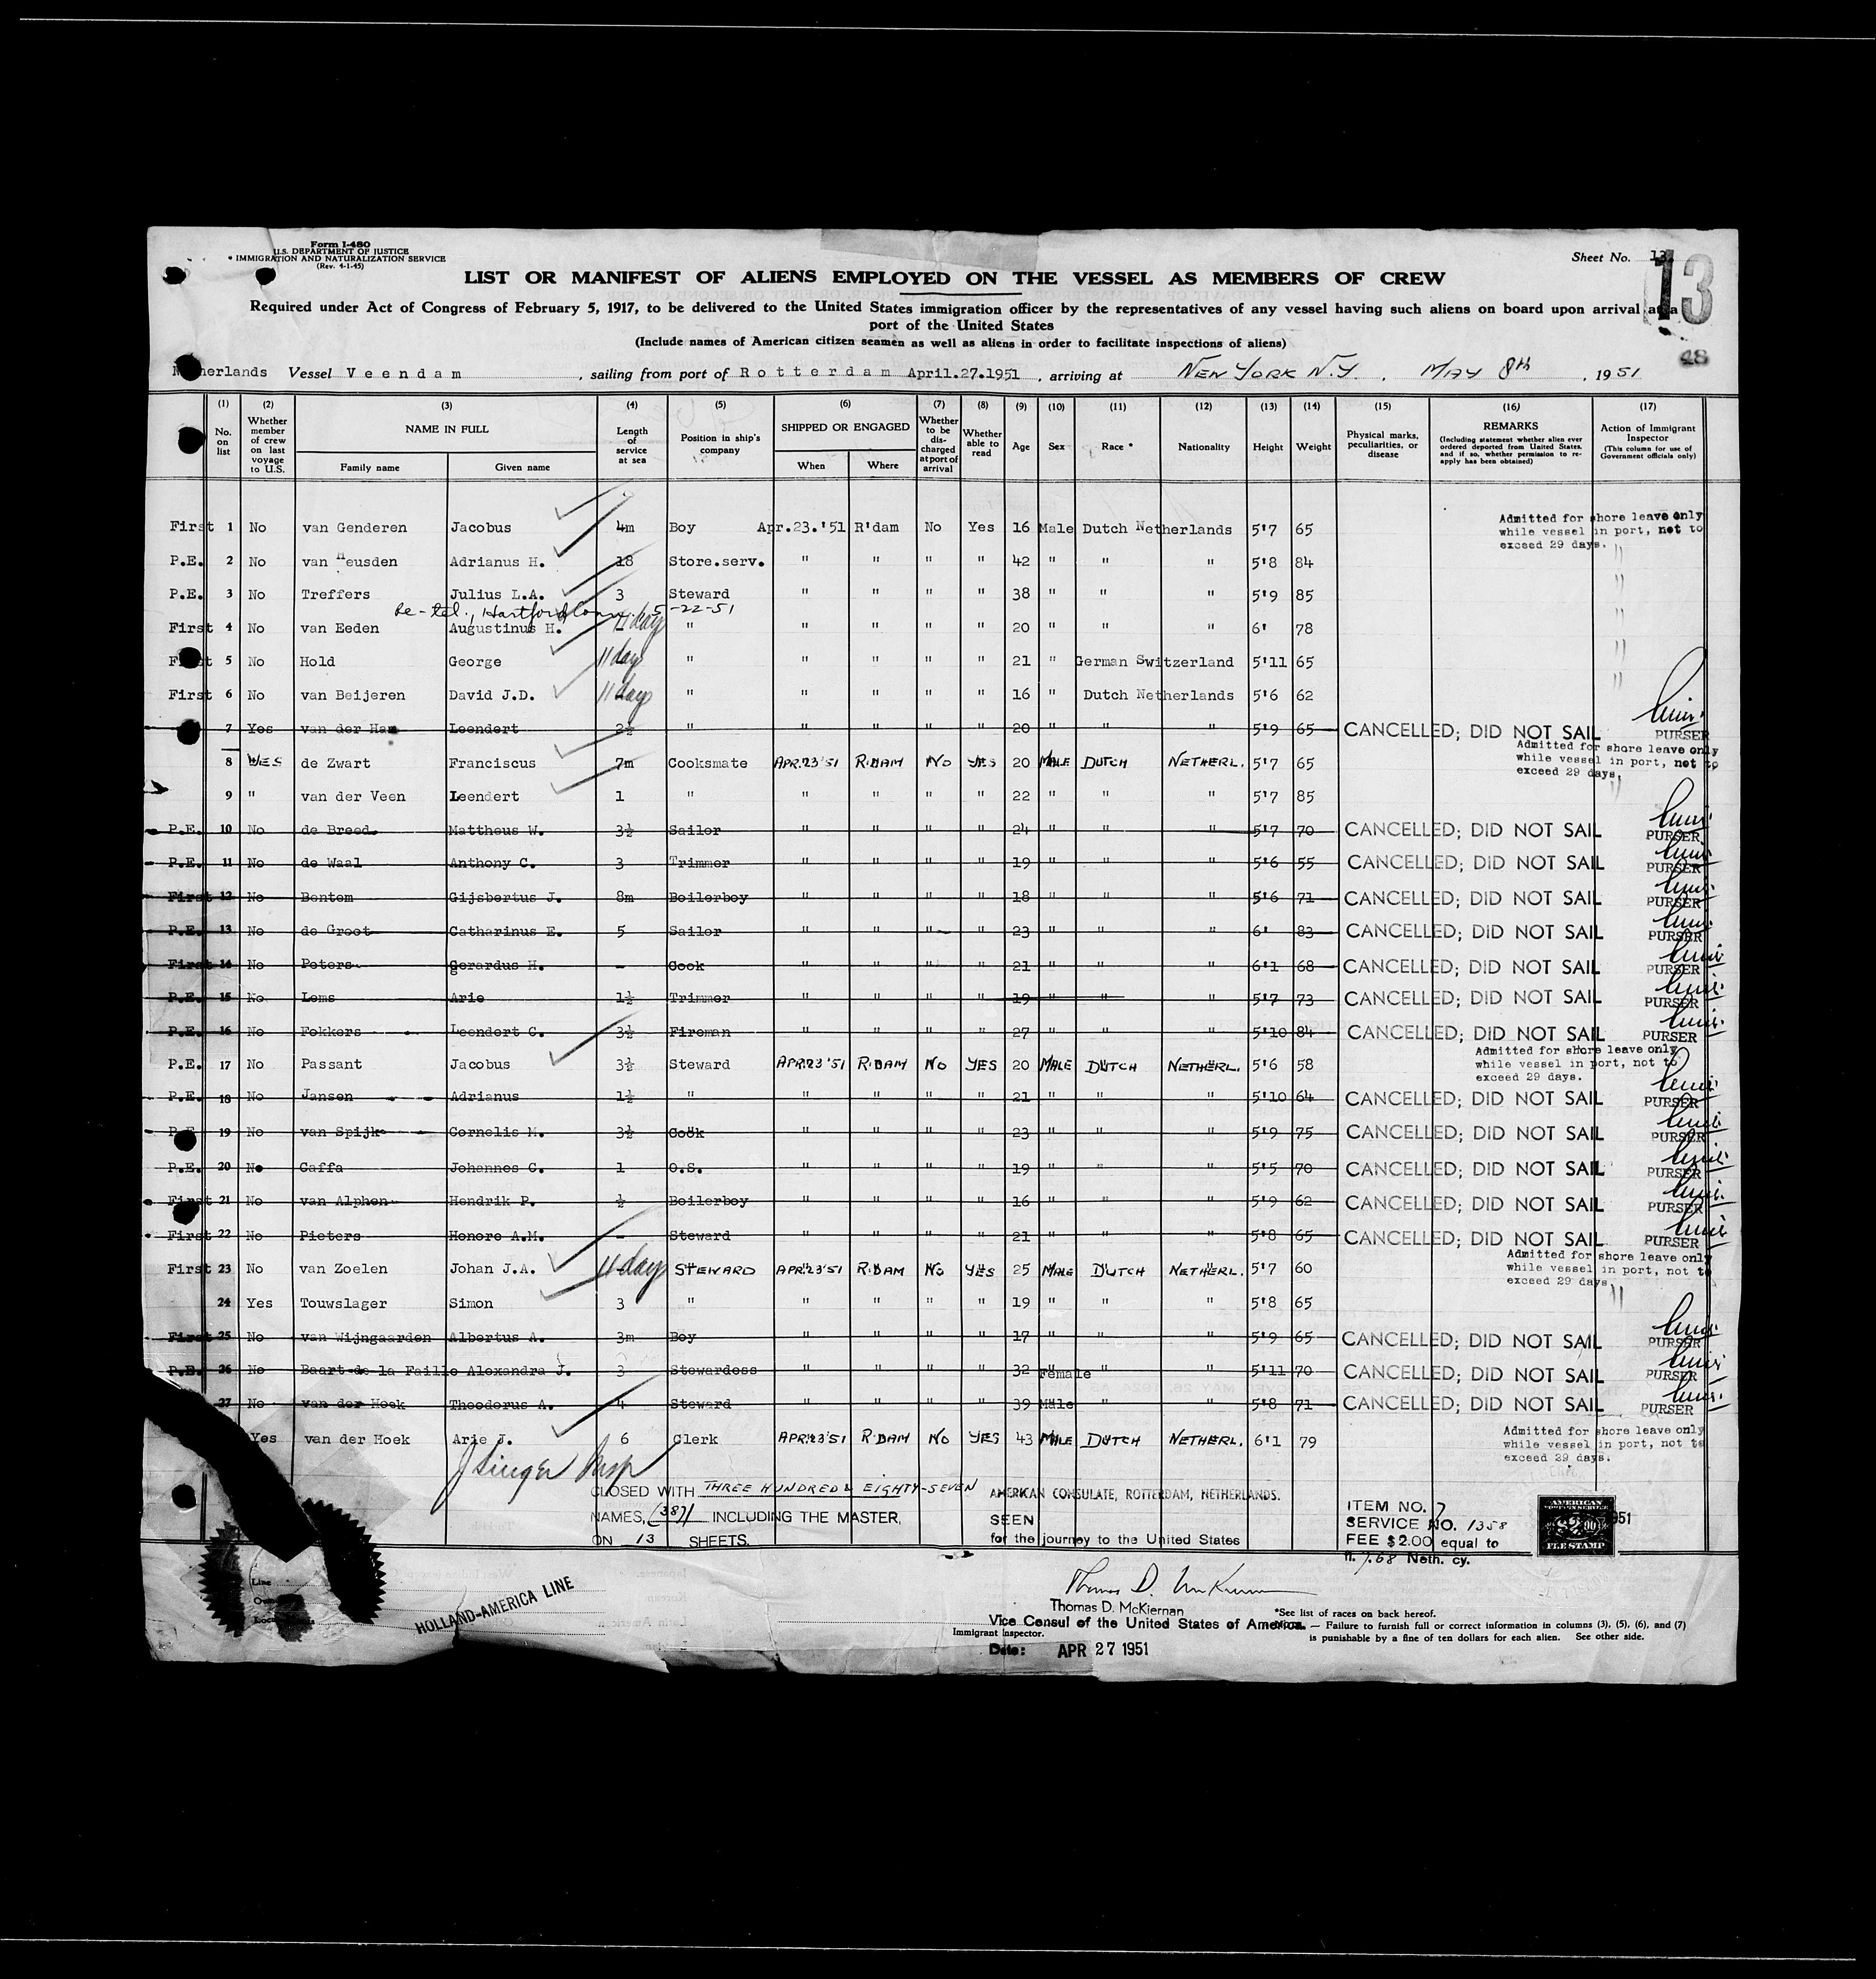 Form I-480
U.S. DEPARTMENT OF JUSTICE
IMMIGRATION AND NATURALIZATION SERVICE
(Rev. 4-1-45)
Sheet No. 13
13
LIST OR MANIFEST OF ALIENS EMPLOYED ON THE VESSEL AS MEMBERS OF CREW
Required under Act of Congress of February 5, 1917, to be delivered to the United States immigration officer by the representatives of any vessel having such aliens on board upon arrival at a
port of the United States
(Include names of American citizen seamen as well as aliens in order to facilitate inspections of aliens)
48
Netherlands Vessel Veendam, sailing from port of Rotterdam April.27.1951, arriving at NEW YORK N.Y., MAY 8th, 1951
(1) (2) (3) (4) (5) (6) (7) (8) (9) (10) (11) (12) (13) (14) (15) (16) (17)
No. on list
Whether member of crew on last voyage to U.S.
NAME IN FULL
Family name
Given name
Length of service at sea
Position in ship's company
SHIPPED OR ENGAGED
When
Where
Whether to be discharged at port of arrival
Whether able to read
Age
Sex
Race *
Nationality
Height
Weight
Physical marks, peculiarities, or disease
REMARKS
(Including statement whether alien ever ordered deported from United States, and if so, whether permission to re-apply has been obtained)
Action of Immigrant Inspector
(This column for use of Government officials only)
First 1 No van Genderen Jacobus 4m Boy Apr.23.'51 R'dam No Yes 16 Male Dutch Netherlands 5'7 65 Admitted for shore leave only while vessel in port, not to exceed 29 days.
P.E. 2 No van Heusden Adrianus H. 18 Store.serv. " " " " 42 " " " 5'8 84 "
P.E. 3 No Treffers Julius L.A. 3 Steward " " " " 38 " " " 5'9 85 "
De-tel., Hartford Conn. 5-22-51
First 4 No van Eeden Augustinus H. 11 day " " " " " 20 " " " 6' 78 "
First 5 No Hold George 11 day " " " " " 21 " German Switzerland 5'11 65 "
First 6 No van Beijeren David J.D. 11 days " " " " " 16 " Dutch Netherlands 5'6 62 "
7 Yes van der Ham Leendert 2½ " " " " " 20 " " " 5'9 65 CANCELLED; DID NOT SAIL PURSER
8 YES de Zwart Franciscus 7m Cooksmate APR.23'51 R'DAM NO YES 20 MALE DUTCH NETHERL. 5'7 65 Admitted for shore leave only while vessel in port, not to exceed 29 days.
9 " van der Veen Leendert 1 " " " " " 22 " " " 5'7 85 "
P.E. 10 No de Breed Mattheus W. 3½ Sailor " " " " 24 " " " 5'7 70 CANCELLED; DID NOT SAIL PURSER
P.E. 11 No de Waal Anthony C. 3 Trimmer " " " " 19 " " " 5'6 55 CANCELLED; DID NOT SAIL PURSER
First 12 No Bentem Gijsbertus J. 8m Boilerboy " " " " 18 " " " 5'6 71 CANCELLED; DID NOT SAIL PURSER
P.E. 13 No de Groot Catharinus E. 5 Sailor " " " " 23 " " " 6' 83 CANCELLED; DID NOT SAIL PURSER
First 14 No Peters Gerardus H. - Cook " " " " 21 " " " 6'1 68 CANCELLED; DID NOT SAIL PURSER
P.E. 15 No Lems Arie 1½ Trimmer " " " " 19 " " " 5'7 73 CANCELLED; DID NOT SAIL PURSER
P.E. 16 No Fokkers Leendert C. 3½ Fireman " " " " 27 " " " 5'10 84 CANCELLED; DID NOT SAIL PURSER
P.E. 17 No Passant Jacobus 3½ Steward APR.23'51 R'DAM NO YES 20 MALE DUTCH NETHERL. 5'6 58 Admitted for shore leave only while vessel in port, not to exceed 29 days.
P.E. 18 No Jansen Adrianus 1½ " " " " " 21 " " " 5'10 64 CANCELLED; DID NOT SAIL PURSER
P.E. 19 No van Spijk Cornelis M. 3½ Cook " " " " 23 " " " 5'9 75 CANCELLED; DID NOT SAIL PURSER
P.E. 20 No Caffa Johannes C. 1 O.S. " " " " 19 " " " 5'5 70 CANCELLED; DID NOT SAIL PURSER
First 21 No van Alphen Hendrik P. ½ Boilerboy " " " " 16 " " " 5'9 62 CANCELLED; DID NOT SAIL PURSER
First 22 No Pieters Honore A.M. - Steward " " " " 21 " " " 5'8 65 CANCELLED; DID NOT SAIL PURSER
First 23 No van Zoelen Johan J.A. 11 day STEWARD APR.23'51 R'DAM NO YES 25 MALE DUTCH NETHERL. 5'7 60 Admitted for shore leave only while vessel in port, not to exceed 29 days.
24 Yes Touwslager Simon 3 " " " " " 19 " " " 5'8 65 "
First 25 No van Wijngaarden Albertus A. 3m Boy " " " " 17 " " " 5'9 65 CANCELLED; DID NOT SAIL PURSER
P.E. 26 No Baart de la Faille Alexandra J. 3 Stewardess " " " " 32 Female " " 5'11 70 CANCELLED; DID NOT SAIL PURSER
27 No van der Hoek Theodorus A. 4 Steward " " " " 39 Male " " 5'8 71 CANCELLED; DID NOT SAIL PURSER
Yes van der Hoek Arie J. 6 Clerk APR.23'51 R'DAM NO YES 43 MALE DUTCH NETHERL. 6'1 79 Admitted for shore leave only while vessel in port, not to exceed 29 days.
J Singer Insp
CLOSED WITH THREE HUNDRED & EIGHTY-SEVEN
NAMES, (387) INCLUDING THE MASTER,
ON 13 SHEETS.
AMERICAN CONSULATE, ROTTERDAM, NETHERLANDS.
SEEN
for the journey to the United States
ITEM NO. 7
SERVICE NO. 1358
FEE $2.00 equal to
fl. 7.68 Neth. cy.
AMERICAN
FOREIGN SERVICE
$2.00
FEE STAMP
951
Line
HOLLAND-AMERICA LINE
Thomas D. McKiernan
Thomas D. McKiernan
Vice Consul of the United States of America.
Immigrant Inspector.
Date: APR 27 1951
*See list of races on back hereof.
— Failure to furnish full or correct information in columns (3), (5), (6), and (7)
is punishable by a fine of ten dollars for each alien. See other side.